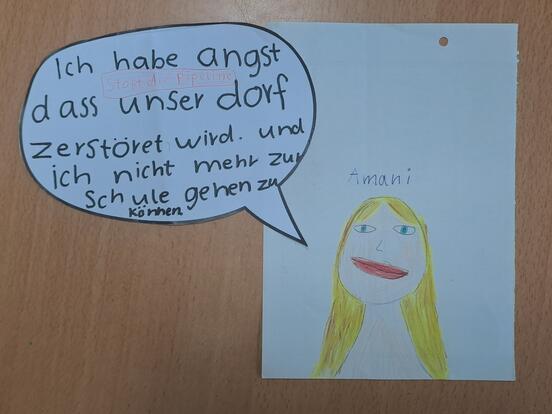 Ich habe angst
Stopt die Pipeline
dass unser dorf
zerstöret wird. und
ich nicht mehr zur
Schule gehen zu
können
Amani